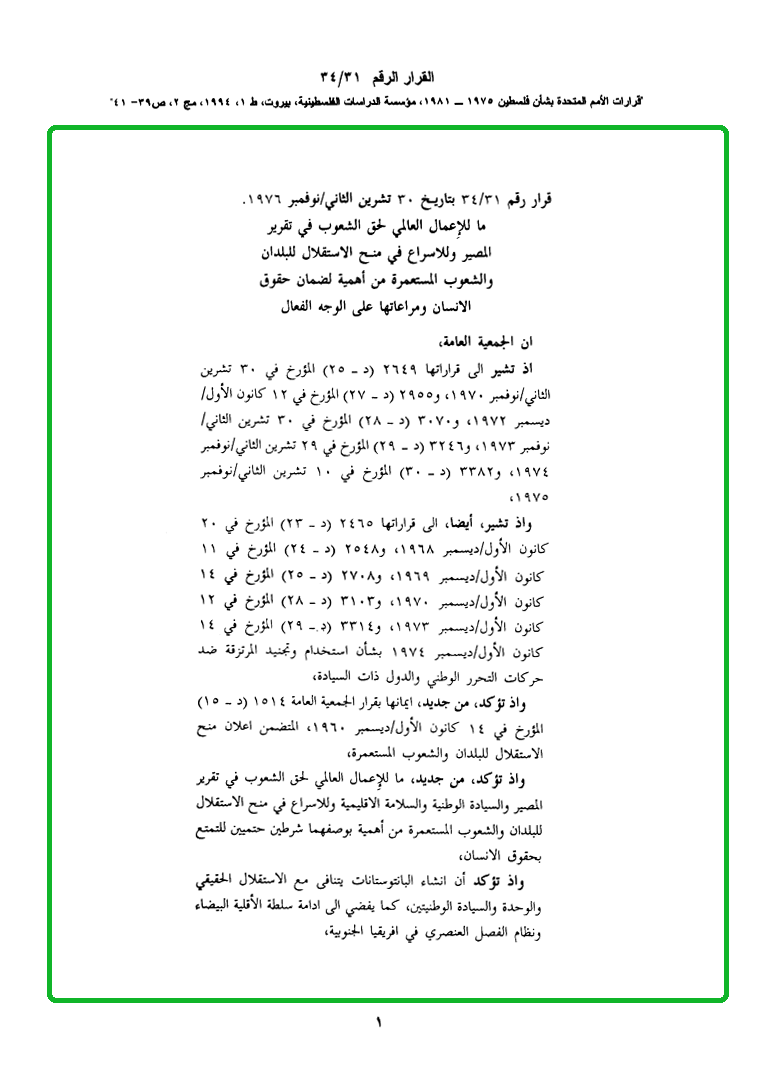 القرار الرقم ٣٤/٣١
"قرارات الأمم المتحدة بشأن فلسطين ١٩٧٥ ــ ١٩٨١، مؤسسة الدراسات الفلسطينية، بيروت، ط ١، ١٩٩٤، مج ٢، ص٣٩- ٤١"
قرار رقم ٣٤/٣١ بتاريخ ٣٠ تشرين الثاني/نوفمبر ١٩٧٦.
ما للإعمال العالمي لحق الشعوب في تقرير
المصير وللاسراع في منح الاستقلال للبلدان
والشعوب المستعمرة من أهمية لضمان حقوق
الانسان ومراعاتها على الوجه الفعال
ان الجمعية العامة،
اذ تشير الى قراراتها ٢٦٤٩ (د ـ ٢٥) المؤرخ في ٣٠ تشرين
الثاني/نوفمبر ١٩٧٠، و٢٩٥٥ (د ـ ٢٧) المؤرخ في ١٢ كانون الأول/
ديسمبر ١٩٧٢، و٣٠٧٠ (د ـ ٢٨) المؤرخ في ٣٠ تشرين الثاني/
نوفمبر ١٩٧٣، و٣٢٤٦ (د ـ ٢٩) المؤرخ في ٢٩ تشرين الثاني/نوفمبر
١٩٧٤، و٣٣٨٢ (د ـ ٣٠) المؤرخ في ١٠ تشرين الثاني/نوفمبر
١٩٧٥،
واذ تشير، أيضا، الى قراراتها ٢٤٦٥ (د ـ ٢٣) المؤرخ في ٢٠
كانون الأول/ديسمبر ١٩٦٨، و٢٥٤٨ (د ـ ٢٤) المؤرخ في ١١
كانون الأول/ديسمبر ١٩٦٩، و٢٧٠٨ (د ـ ٢٥) المؤرخ في ١٤
كانون الأول/ديسمبر ١٩٧٠، و٣١٠٣ (د ـ ٢٨) المؤرخ في ١٢
كانون الأول/ديسمبر ١٩٧٣، و٣٣١٤ (د ـ ٢٩) المؤرخ في ١٤
كانون الأول/ديسمبر ١٩٧٤ بشأن استخدام وتجنيد المرتزقة ضد
حركات التحرر الوطني والدول ذات السيادة،
واذ تؤكد، من جديد، ايمانها بقرار الجمعية العامة ١٥١٤ (د ـ ١٥)
المؤرخ في ١٤ كانون الأول/ديسمبر ١٩٦٠، المتضمن اعلان منح
الاستقلال للبلدان والشعوب المستعمرة،
واذ تؤكد، من جديد، ما للإعمال العالمي لحق الشعوب في تقرير
المصير والسيادة الوطنية والسلامة الاقليمية وللاسراع في منح الاستقلال
للبلدان والشعوب المستعمرة من أهمية بوصفهما شرطين حتميين للتمتع
بحقوق الانسان،
واذ تؤكد أن انشاء البانتوستانات يتنافى مع الاستقلال الحقيقي
والوحدة والسيادة الوطنيتين، كما يفضي الى ادامة سلطة الأقلية البيضاء
ونظام الفصل العنصري في افريقيا الجنوبية،
١